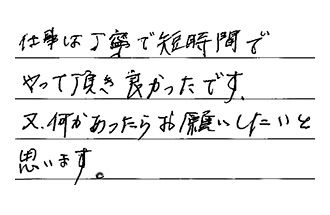 仕事は丁寧で短時間で
やって頂き良かったです.
又、何かあったらお願いしたいと
思います。